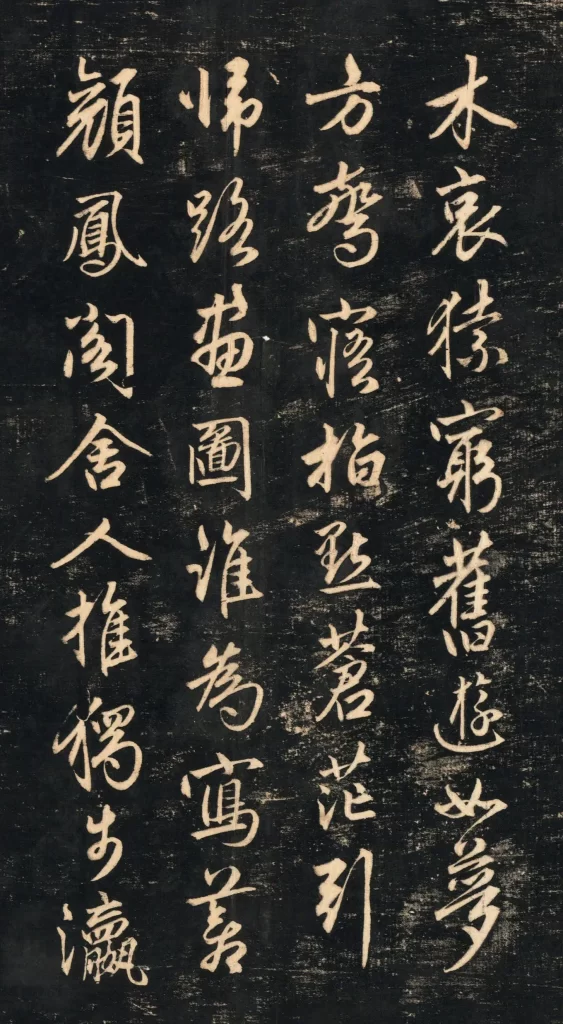 木哀猿窮舊遊如夢
方驚寤指點蒼茫引
歸路畫圖誰為寫蒼
顏鳳閣舍人推獨步瀛